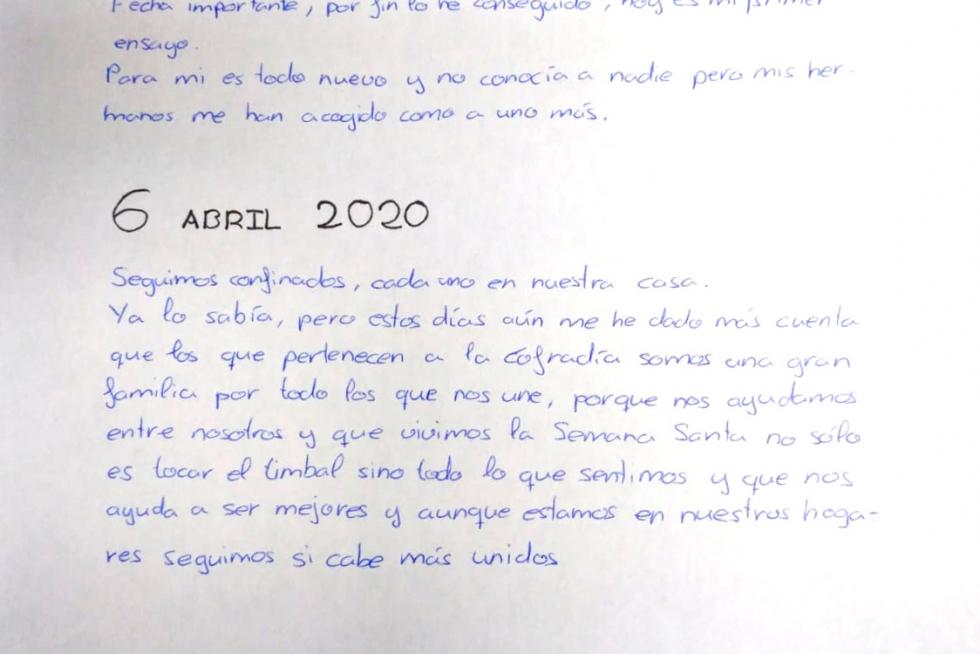 Fecha importante, por fin lo he conseguido, hoy es mi primer
ensayo.
Para mi es todo nuevo y no conocía a nadie pero mis her-
manos me han acogido como a uno más.
6 ABRIL 2020
Seguimos confinados, cada uno en nuestra casa.
Ya lo sabía, pero estos días aún me he dado más cuenta
que los que pertenecen a la cofradía somos una gran
familia por todo los que nos une, porque nos ayudamos
entre nosotros y que vivimos la Semana Santa no sólo
es tocar el timbal sino todo lo que sentimos y que nos
ayuda a ser mejores y aunque estamos en nuestros hoga-
res seguimos si cabe más unidos